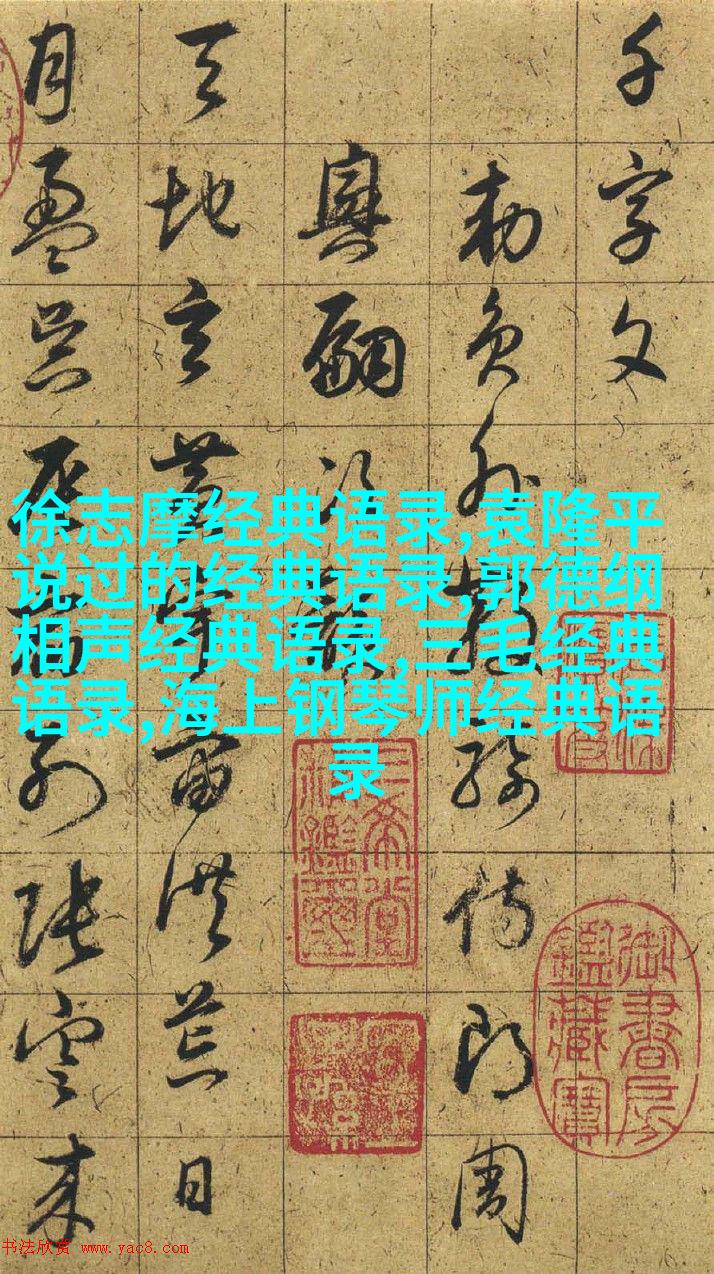 千字文
勑員外散騎侍郎周
興嗣次韻
天地玄黃宇宙洪荒日
月盈昃辰宿列張寒來
徐志摩经典语录,袁隆平
说过的经典语录,郭德纲
相声经典语录,三毛经典
语录,海上钢琴师经典语
录
三希堂精鑑璽
御書房鑑藏寶
书法欣赏 www.yac8.com